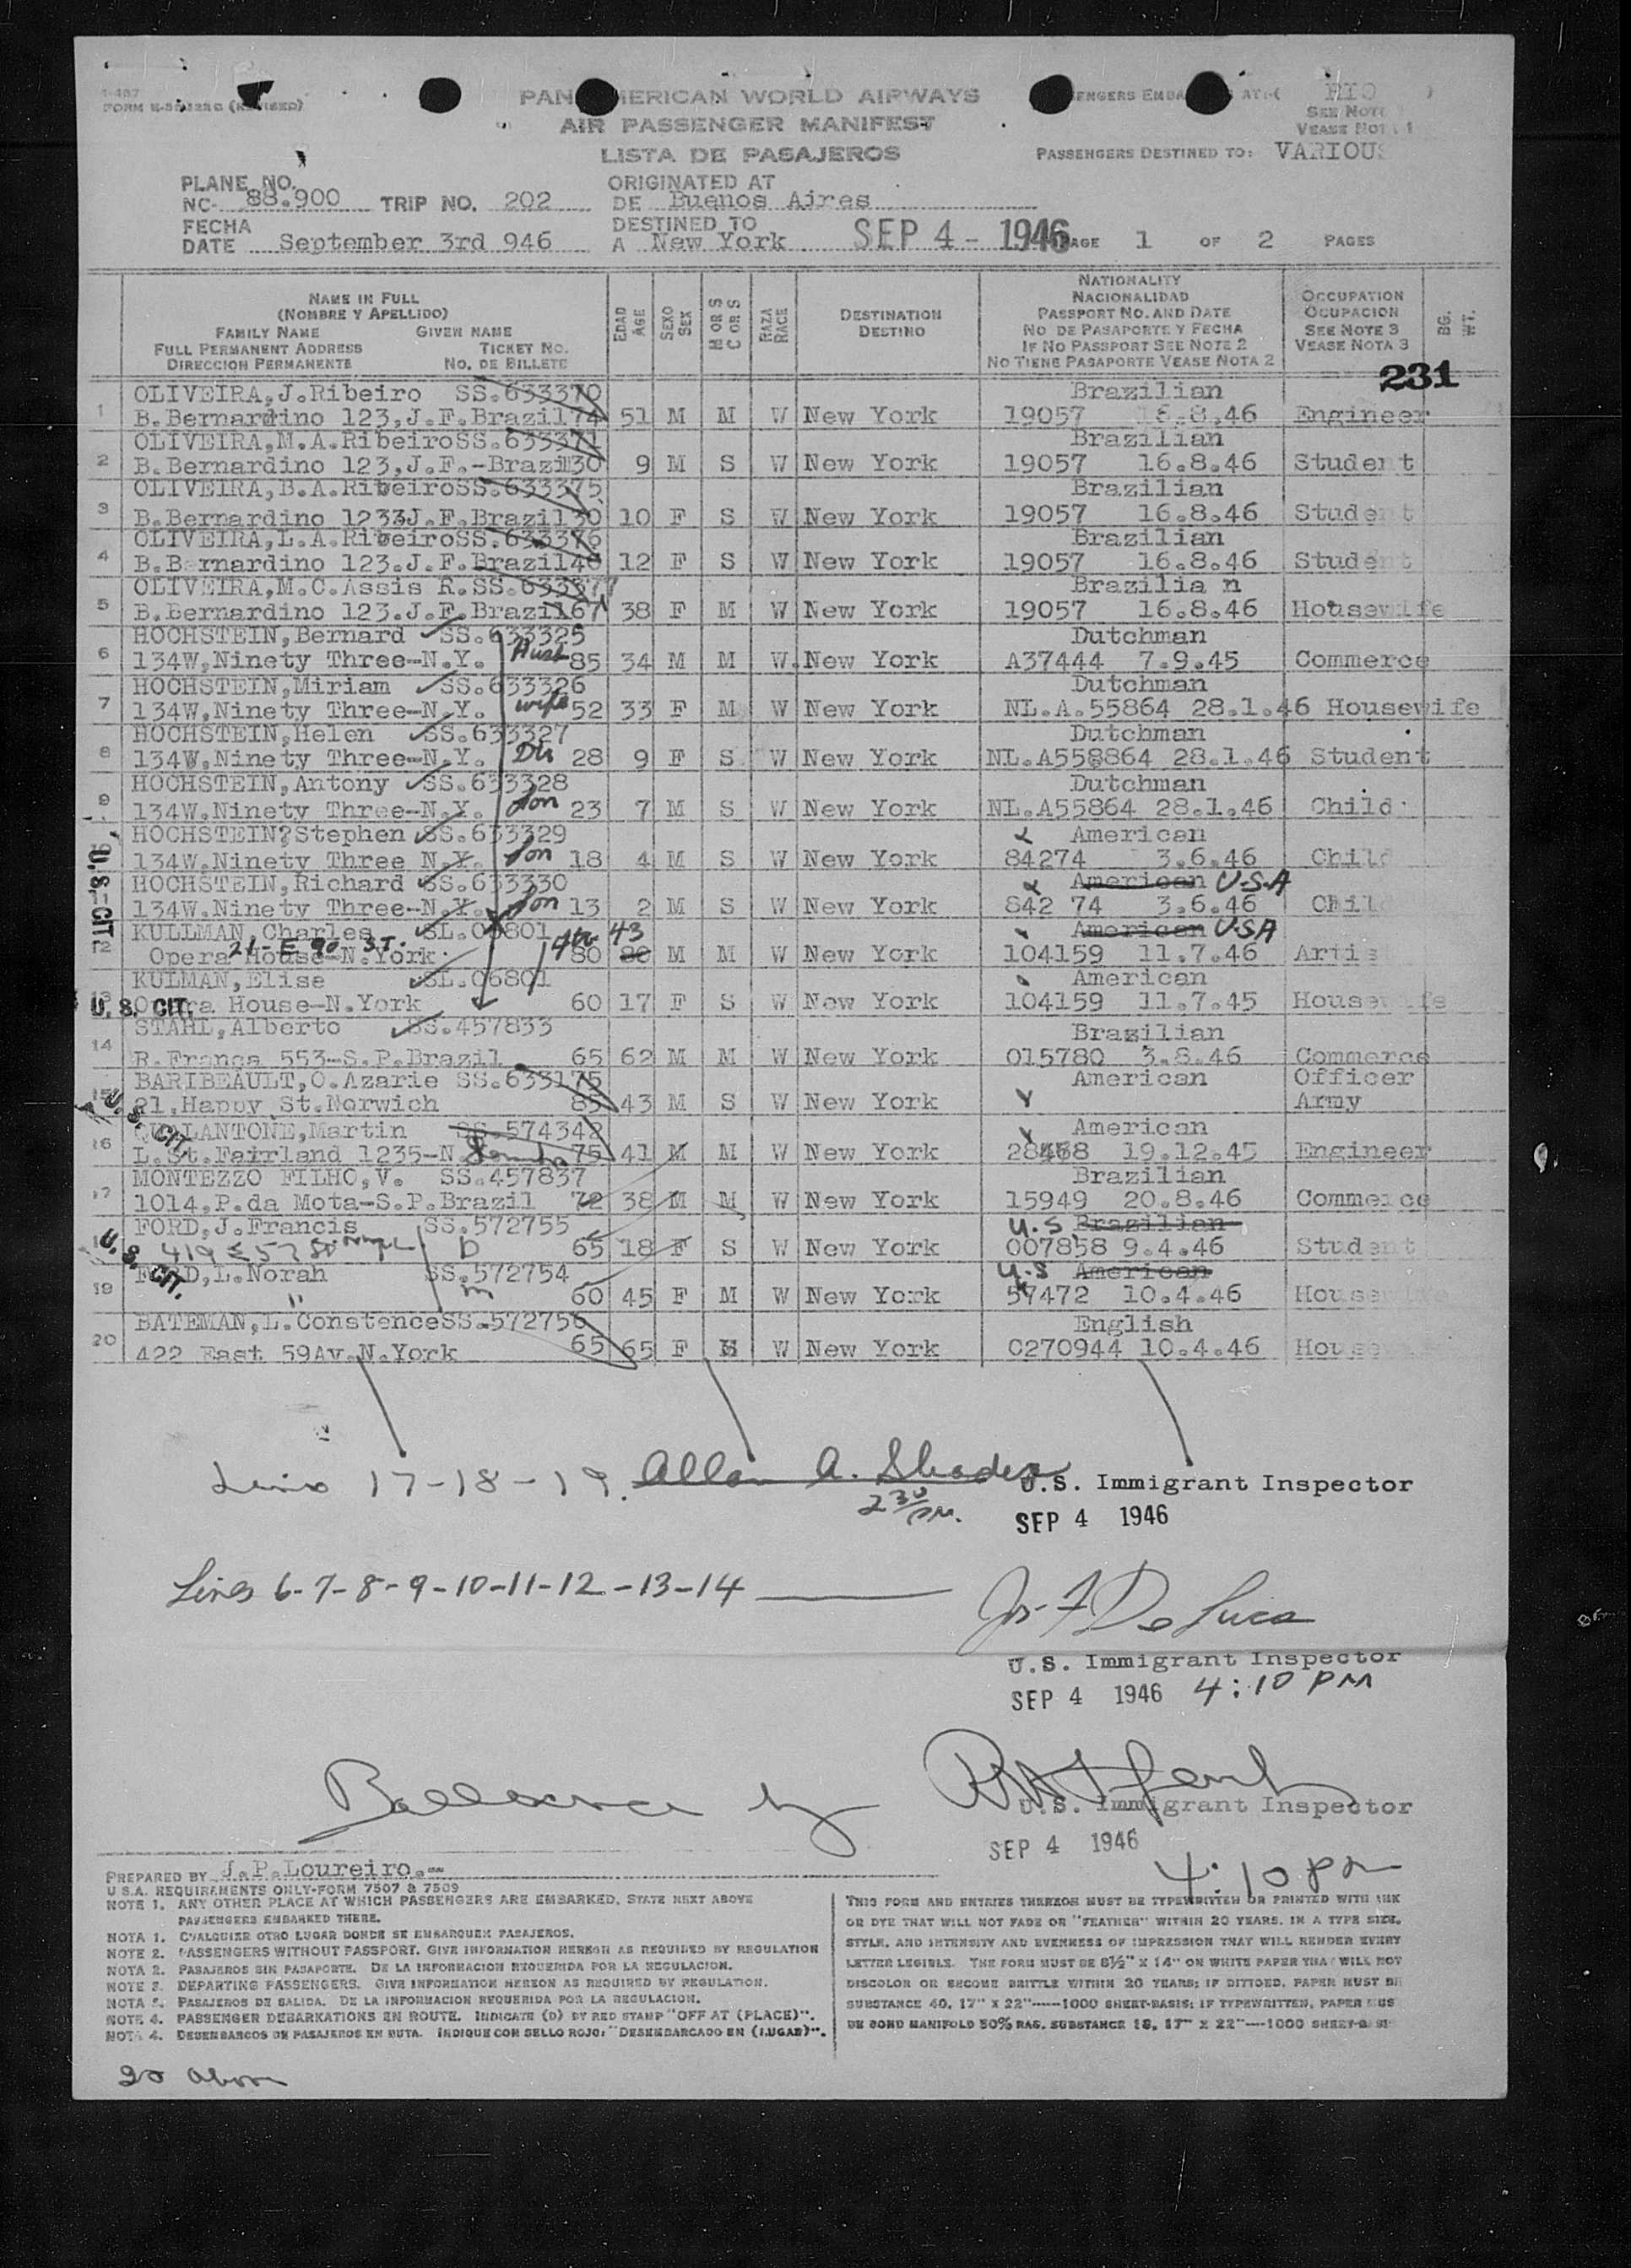 PAN AMERICAN WORLD AIRWAYS
AIR PASSENGER MANIFEST
LISTA DE PASAJEROS
RIO
SEE NOTE
VEASE NOTA 1
PASSENGERS DESTINED TO: VARIOUS
PLANE NO.
NC- 88.900 TRIP NO. 202
ORIGINATED AT
DE Buenos Aires
FECHA
DATE September 3rd 946
DESTINED TO
A New York SEP 4 - 1946 PAGE 1 OF 2 PAGES
NAME IN FULL
(NOMBRE Y APELLIDO)
FAMILY NAME GIVEN NAME
FULL PERMANENT ADDRESS TICKET NO.
DIRECCION PERMANENTE NO. DE BILLETE
EDAD AGE
SEXO SEX
M OR S C OR S
RAZA RACE
DESTINATION
DESTINO
NATIONALITY
NACIONALIDAD
PASSPORT NO. AND DATE
NO DE PASAPORTE Y FECHA
IF NO PASSPORT SEE NOTE 2
NO TIENE PASAPORTE VEASE NOTA 2
OCCUPATION
OCUPACION
SEE NOTE 3
VEASE NOTA 3
BG. WT.
231
OLIVEIRA,J.Ribeiro SS.633370 Brazilian
1 B.Bernardino 123,J.F.Brazil 74 51 M M W New York 19057 16.8.46 Engineer
OLIVEIRA,M.A.Ribeiro SS.633371 Brazilian
2 B.Bernardino 123,J.F.-Brazil 30 9 M S W New York 19057 16.8.46 Student
OLIVEIRA,B.A.Ribeiro SS.633375 Brazilian
3 B.Bernardino 1233J.F.Brazil 30 10 F S W New York 19057 16.8.46 Student
OLIVEIRA,L.A.Ribeiro SS.633376 Brazilian
4 B.B rnardino 123.J.F.Brazil 40 12 F S W New York 19057 16.8.46 Student
OLIVEIRA,M.C.Assis R.SS.633377 Brazilia n
5 B.Bernardino 123.J.F.Brazil 67 38 F M W New York 19057 16.8.46 Housewife
HOCHSTEIN,Bernard SS.633325 Dutchman
6 134W,Ninety Three-N.Y. Husb 85 34 M M W. New York A37444 7.9.45 Commerce
HOCHSTEIN,Miriam SS.633326 Dutchman
7 134W,Ninety Three-N.Y. wife 52 33 F M W New York NL.A.55864 28.1.46 Housewife
HOCHSTEIN,Helen SS.633327 Dutchman
8 134W,Ninety Three-N.Y. Dtr 28 9 F S W New York NL.A558864 28.1.46 Student
HOCHSTEIN,Antony SS.633328 Dutchman
9 134W.Ninety Three-N.Y. Son 23 7 M S W New York NL.A55864 28.1.46 Child
HOCHSTEIN?Stephen SS.633329 American
134W.Ninety Three N.Y. Son 18 4 M S W New York 84274 3.6.46 Child
HOCHSTEIN,Richard SS.633330 American U.S.A
134W.Ninety Three-N.Y. Son 13 2 M S W New York 842 74 3.6.46 Child
U.S. CIT.
KULLMAN,Charles SL.06801 43 American USA
21-E 90 ST.
12 Opera House-N.York 80 M M W New York 104159 11.7.46 Artis
KULMAN,Elise SL.06801 American
13 Opera House-N.York 60 17 F S W New York 104159 11.7.45 Housewife
U.S. CIT.
STAHL,Alberto SS.457833 Brazilian
14 R.Franga 553-S.P.Brazil 65 62 M M W New York 015780 3.8.46 Commerce
BARIBEAULT,O.Azarie SS.633175 American Officer
15 21.Happy St.Norwich 85 43 M S W New York Army
U.S. CIT.
QUALANTONE,Martin SS.574342 American
16 L.St.Fairland 1235-N. 75 41 M M W New York 28468 19.12.45 Engineer
MONTEZZO FILHO,V. SS.457837 Brazilian
17 1014,P.da Mota-S.P.Brazil 72 38 M M W New York 15949 20.8.46 Commerce
FORD,J.Francis SS.572755 U.S Brazilian
419 E 57 St D 65 18 F S W New York 007858 9.4.46 Student
U.S. CIT.
FORD,L.Norah SS.572754 U.S American
19 " m 60 45 F M W New York 57472 10.4.46 House
BATEMAN,L.Constence SS.572756 English
20 422 East 59Av.N.York 65 65 F W New York C270944 10.4.46 House
Lines 17-18-19. Allan A. Shader U.S. Immigrant Inspector
2 30/PM. SEP 4 1946
Lines 6-7-8-9-10-11-12-13-14 Jos. F De Luca
U.S. Immigrant Inspector
SEP 4 1946 4:10 PM
Ballance by
U.S. Immigrant Inspector
SEP 4 1946
4:10 PM
PREPARED BY J.P.Loureiro.--
U S.A. REQUIREMENTS ONLY-FORM 7507 & 7509
NOTE 1. ANY OTHER PLACE AT WHICH PASSENGERS ARE EMBARKED, STATE NEXT ABOVE
PASSENGERS EMBARKED THERE.
NOTA 1. CUALQUIER OTRO LUGAR DONDE SE EMBARQUEN PASAJEROS.
NOTE 2. PASSENGERS WITHOUT PASSPORT. GIVE INFORMATION HEREON AS REQUIRED BY REGULATION
NOTA 2. PASAJEROS SIN PASAPORTE. DE LA INFORMACION REQUERIDA POR LA REGULACION.
NOTE 3. DEPARTING PASSENGERS. GIVE INFORMATION HEREON AS REQUIRED BY REGULATION.
NOTA 3. PASAJEROS DE SALIDA. DE LA INFORMACION REQUERIDA POR LA REGULACION.
NOTE 4. PASSENGER DEBARKATIONS EN ROUTE. INDICATE (D) BY RED STAMP "OFF AT (PLACE)".
NOTA 4. DESEMBARCOS DE PASAJEROS EN RUTA. INDIQUE CON SELLO ROJO: "DESEMBARCADO EN (LUGAR)".
THIS FORM AND ENTRIES THEREON MUST BE TYPEWRITTEN OR PRINTED WITH INK
OR DYE THAT WILL NOT FADE OR "FEATHER" WITHIN 20 YEARS. IN A TYPE SIZE,
STYLE, AND INTENSITY AND EVENNESS OF IMPRESSION THAT WILL RENDER EVERY
LETTER LEGIBLE. THE FORM MUST BE 8½" X 14" ON WHITE PAPER THAT WILL NOT
DISCOLOR OR BECOME BRITTLE WITHIN 20 YEARS; IF DITTOED, PAPER MUST BE
SUBSTANCE 40, 17" X 22"-----1000 SHEET-BASIS; IF TYPEWRITTEN, PAPER MUS
BE BOND MANIFOLD 50% RAG. SUBSTANCE 18, 17" X 22"----1000 SHEET-BASI
20 above